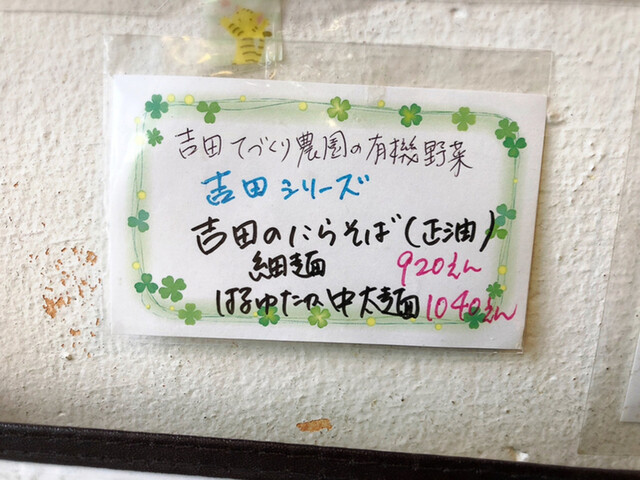 吉田てづくり農園の有機野菜
吉田シリーズ
吉田のにらそば(正油)
細麺 920えん
はるゆたか中太麺 1040えん